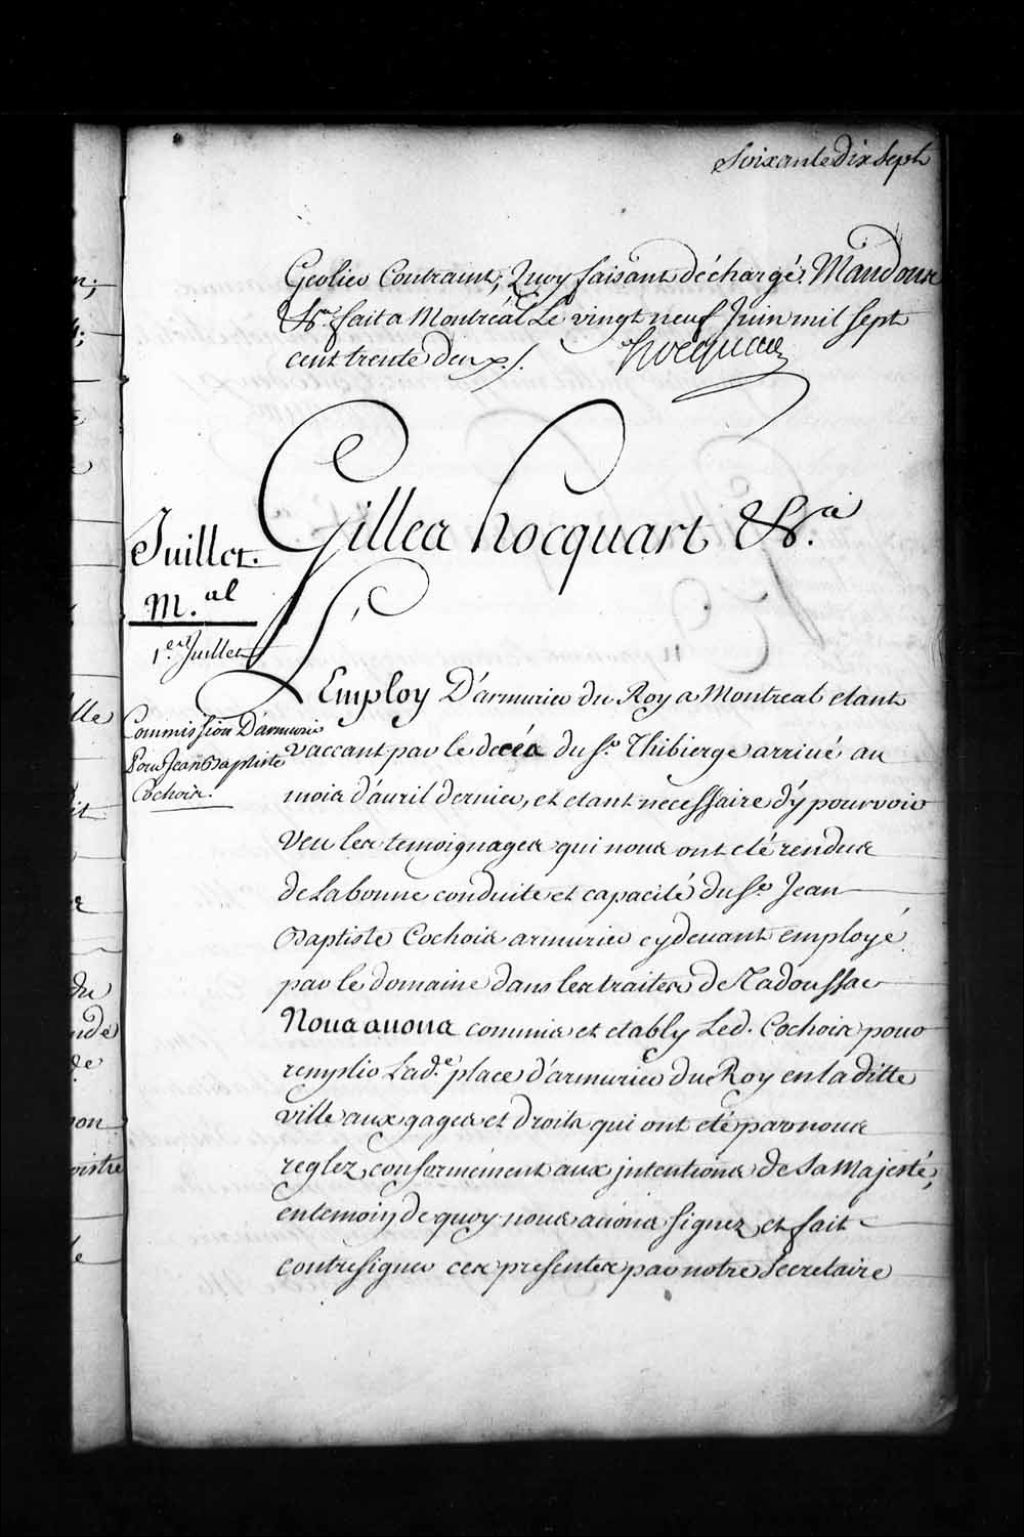 Soixante Dix Sept
Geolier Contraint; Quoy faisant déchargé. Mandons
&ca. fait a Montréal Le vingt neuf Juin mil sept
cent trente deux ./.
hocquart
Gilles hocquart &ca.
Juillet.
M.al
1er. Juillet
L'Employ D'armurier du Roy a Montreal etant
Commission D'armurier
Pour Jean Baptiste
Cochois.
vaccant par le decés du Sr. Thibierge arrivé au
mois d'auril dernier, et etant necessaire d'y pourvoir
Veu les temoignages qui nous ont eté rendus
de La bonne conduite et capacité du Sr. Jean
Baptiste Cochois armurier cydeuant employé
par le domaine dans les traites de Tadoussac
Nous auons commis et etably Led. Cochois pour
remplir Lad.e place d'armurier du Roy en la ditte
ville aux gages et droits qui ont eté par nous
reglez conformément aux intentions de Sa Majesté;
en temoin de quoy nous auons signez et fait
contresigner ces presentes par notre Secretaire